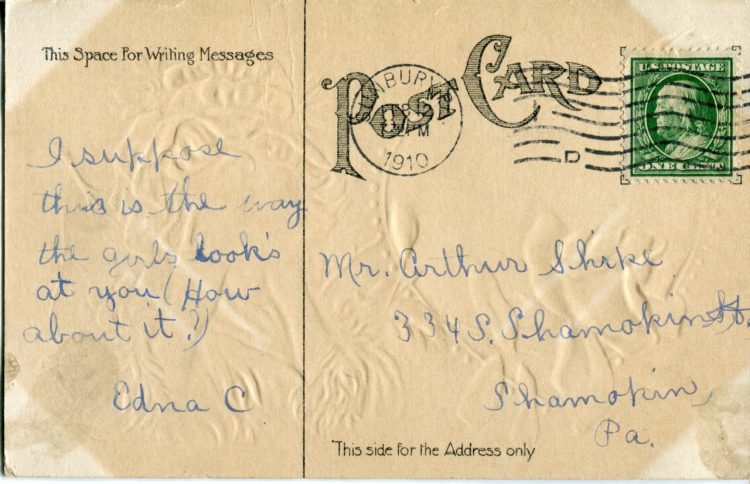 This Space For Writing Messages
POST CARD
NBURY
PM
1910
D
U.S. POSTAGE
ONE CENT
I suppose
this is the way
the girls look's
at you (How
about it?)
Edna C
Mr. Arthur Shrke.
334 S. Shamokin St.
Shamokin,
Pa.
This side for the Address only